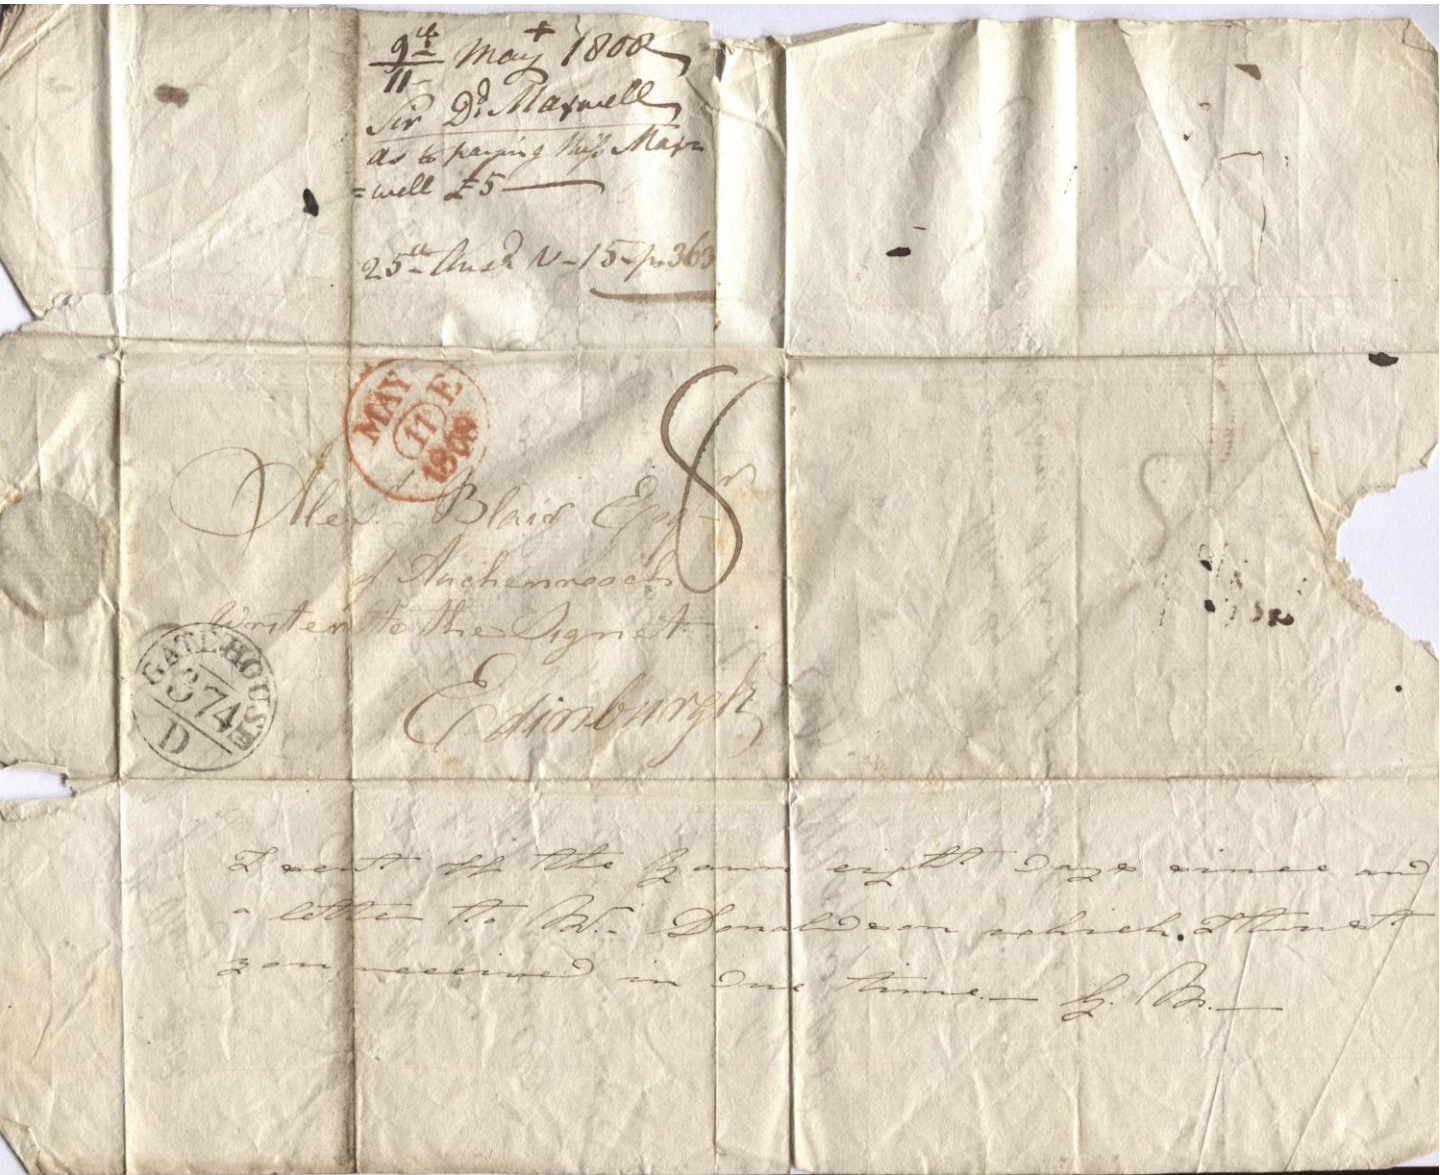 9th May 1808
11
Sir Dd. Maxwell
as to paying Miss Max
=well £5
25th Ansd V-15-p363
MAY E
11
1808
8
Alexr. Blair Esqr
of Auchenreoch
Writer to the Signet
Edinburgh
GATEHOUSE
374
D
I sent off the eight days since and
a letter to Mr. Donaldson which I trust
you received in due time. — M. —